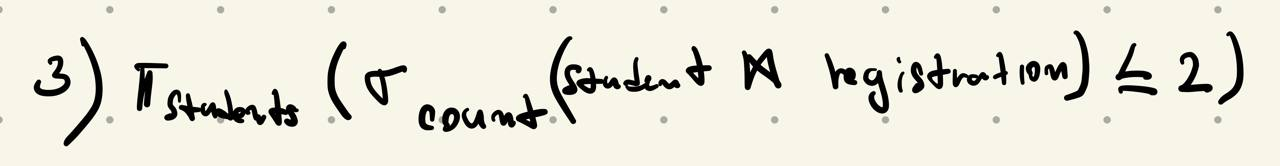 3) π students (σ count (student ⋈ registration) ≤ 2)